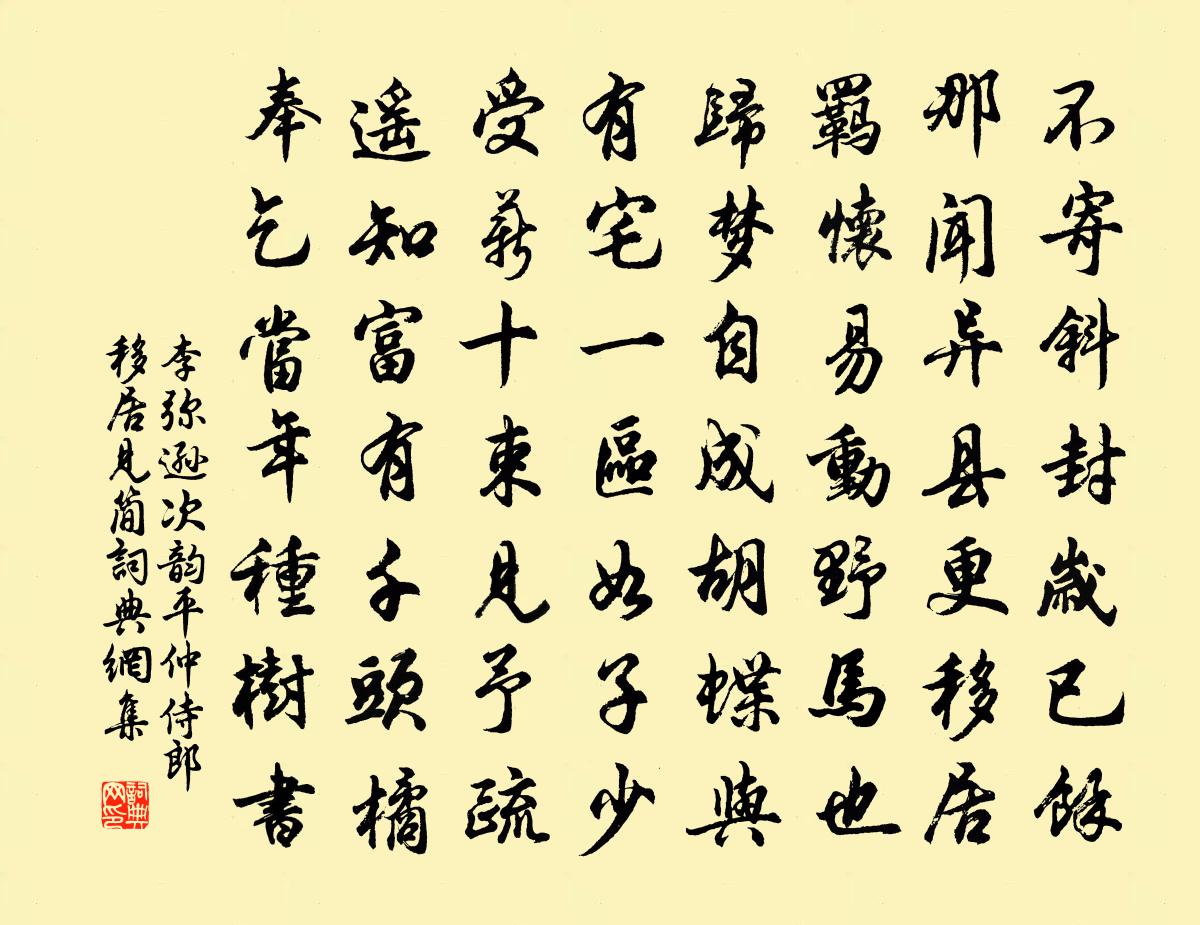 不寄斜封歲已餘
那聞异县更移居
羁懷易動野馬也
歸梦自成胡蝶與
有宅一區如子少
受薪十束見予疏
遥知富有千頭橘
奉乞當年種樹書
李弥遜次韵平仲侍郎
移居見簡詞典網集
詞典网印